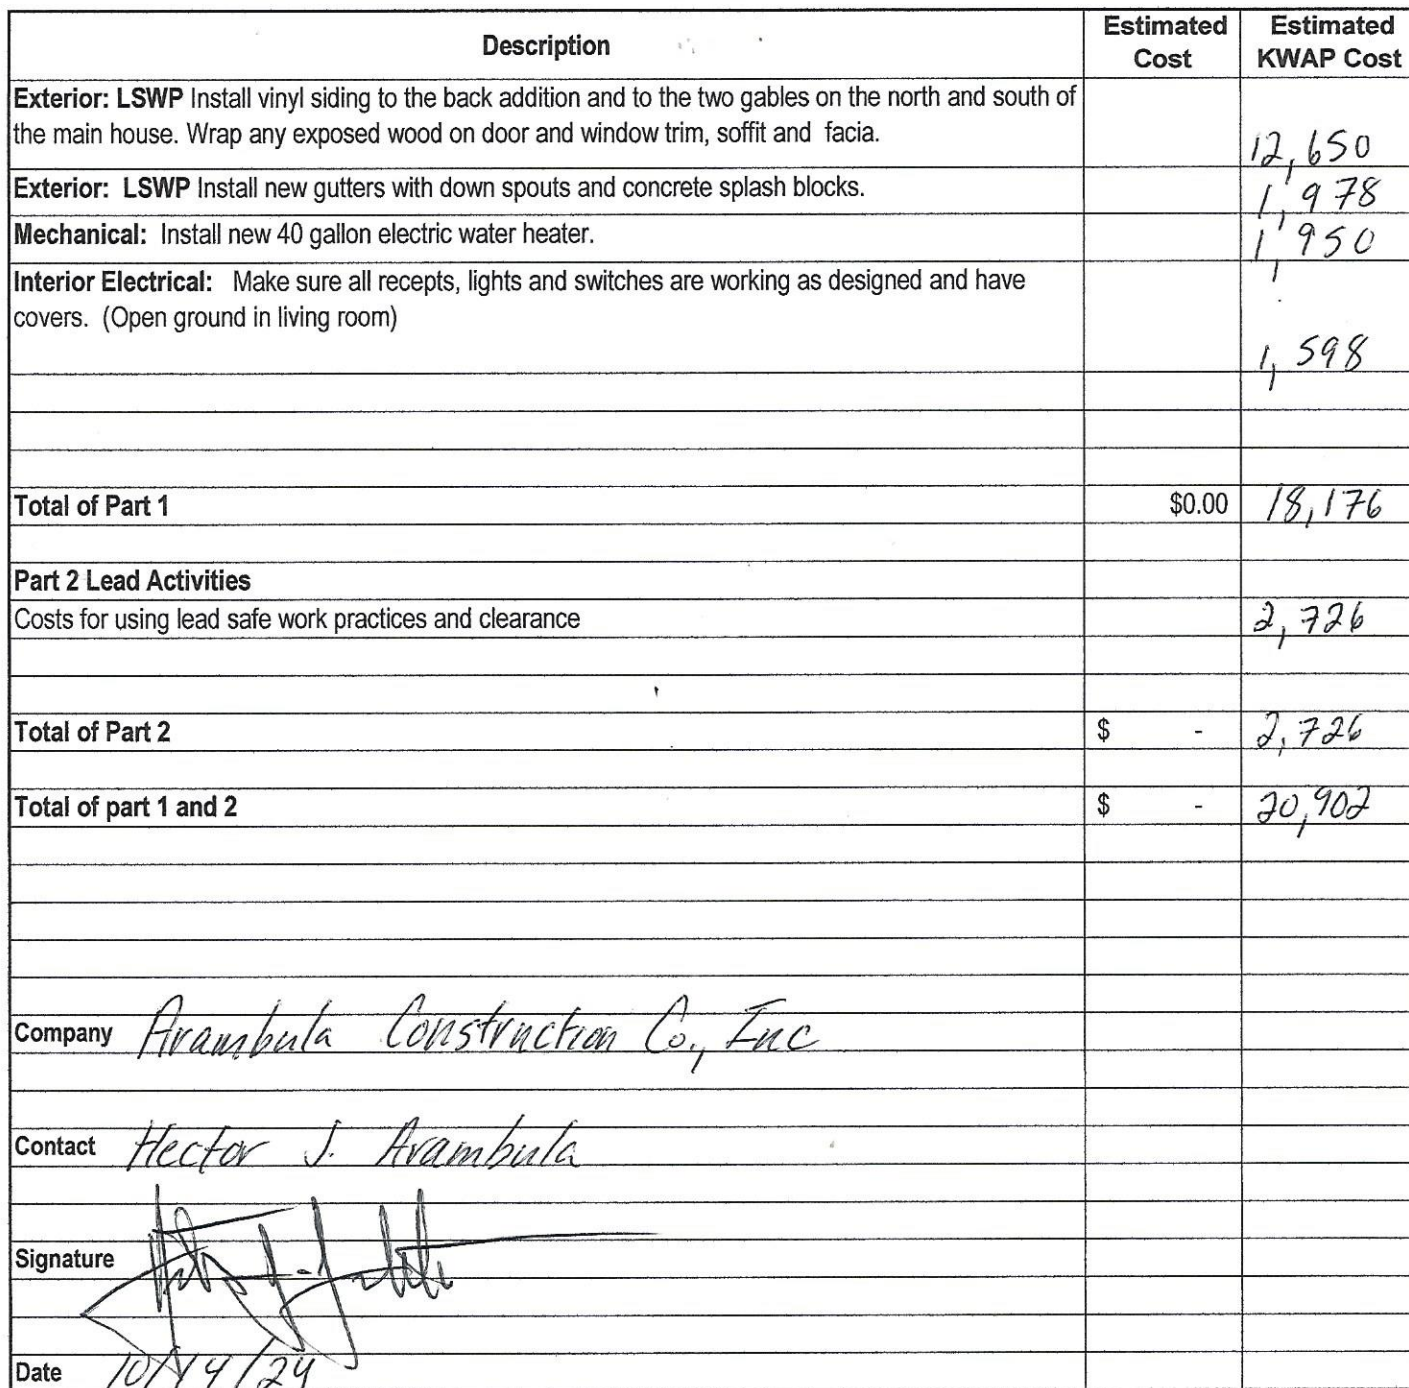 Description Estimated Cost Estimated KWAP Cost
Exterior: LSWP Install vinyl siding to the back addition and to the two gables on the north and south of
the main house. Wrap any exposed wood on door and window trim, soffit and facia. 12,650
Exterior: LSWP Install new gutters with down spouts and concrete splash blocks. 1,978
Mechanical: Install new 40 gallon electric water heater. 1,950
Interior Electrical: Make sure all recepts, lights and switches are working as designed and have
covers. (Open ground in living room)
1,598
Total of Part 1 $0.00 18,176
Part 2 Lead Activities
Costs for using lead safe work practices and clearance 2,726
Total of Part 2 $ - 2,726
Total of part 1 and 2 $ - 20,902
Company Arambula Construction Co., Inc
Contact Hector J. Arambula
Signature
Date 10/14/24